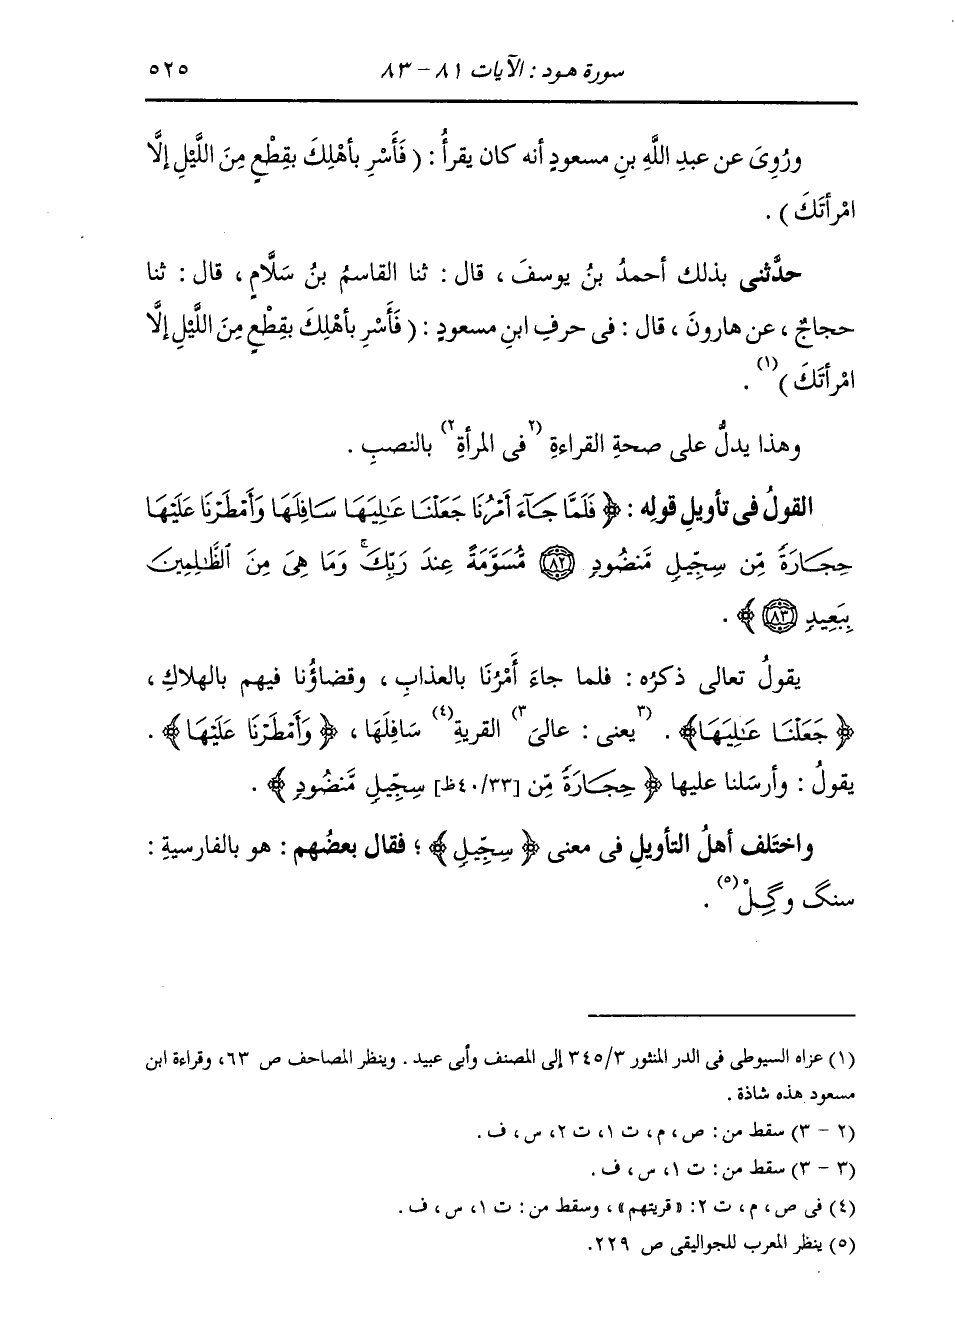 سورة هود : الآيات ٨١ - ٨٣ ٥٢٥
ورُوِىَ عن عبدِ اللَّهِ بنِ مسعودٍ أنه كان يقرأُ : ( فَأَسْرِ بأهْلِكَ بقِطْعٍ مِنَ اللَّيْلِ إلَّا
امْرأتَكَ ) .
حدَّثنى بذلك أحمدُ بنُ يوسفَ ، قال : ثنا القاسمُ بنُ سَلَّامٍ ، قال : ثنا
حجاجٌ ، عن هارونَ ، قال : فى حرفِ ابنِ مسعودٍ : ( فَأَسْرِ بأهْلِكَ بقِطْعٍ مِنَ اللَّيْلِ إلَّا
امْرأتَكَ )(١) .
وهذا يدلُّ على صحةِ القراءةِ (٢فى المرأةِ٢) بالنصبِ .
القولُ فى تأويلِ قولِه : ﴿ فَلَمَّا جَآءَ أَمْرُنَا جَعَلْنَا عَـٰلِيَهَا سَافِلَهَا وَأَمْطَرْنَا عَلَيْهَا
حِجَارَةً مِّن سِجِّيلٍ مَّنضُودٍ (٨٢) مُّسَوَّمَةً عِندَ رَبِّكَ ۖ وَمَا هِىَ مِنَ ٱلظَّـٰلِمِينَ
بِبَعِيدٍ (٨٣) ﴾ .
يقولُ تعالى ذكرُه : فلما جاءَ أَمْرُنَا بالعذابِ ، وقضاؤُنا فيهم بالهلاكِ ،
﴿ جَعَلْنَا عَـٰلِيَهَا ﴾ . (٣يعنى : عالىَ٣) القريةِ(٤) سَافِلَهَا ، ﴿ وَأَمْطَرْنَا عَلَيْهَا ﴾ .
يقولُ : وأرسَلنا عليها ﴿ حِجَارَةً مِّن [٤٠/٣٣ظ] سِجِّيلٍ مَّنضُودٍ ﴾ .
واختَلف أهلُ التأويلِ فى معنى ﴿ سِجِّيلٍ ﴾ ؛ فقال بعضُهم : هو بالفارسيةِ :
سنگ وگِلْ(٥) .
(١) عزاه السيوطى فى الدر المنثور ٣٤٥/٣ إلى المصنف وأبى عبيد . وينظر المصاحف ص ٦٣، وقراءة ابن
مسعود هذه شاذة .
(٢ - ٣) سقط من : ص ، م ، ت ١، ت ٢، س ، ف .
(٣ - ٣) سقط من : ت ١، س ، ف .
(٤) فى ص ، م ، ت ٢: «قريتهم» ، وسقط من : ت ١، س ، ف .
(٥) ينظر المعرب للجواليقى ص ٢٢٩.